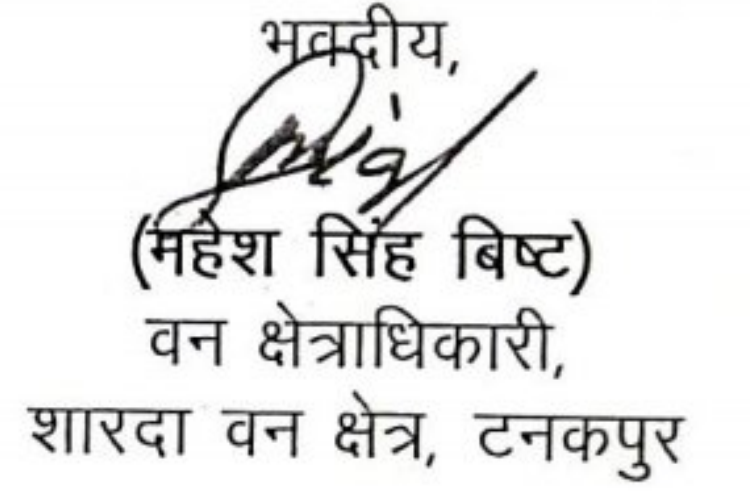 भवदीय,
(महेश सिंह बिष्ट)
वन क्षेत्राधिकारी,
शारदा वन क्षेत्र, टनकपुर